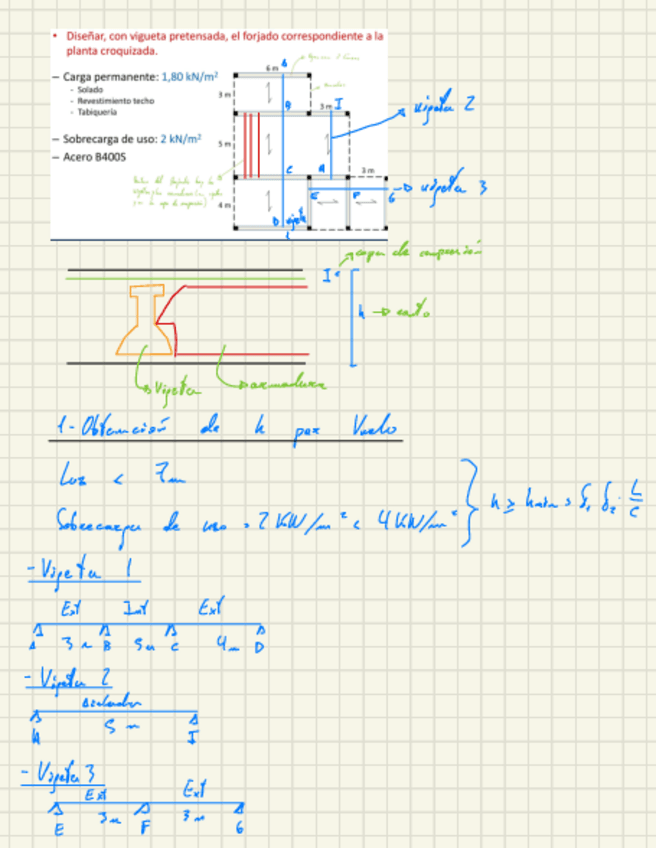 • Diseñar, con vigueta pretensada, el forjado correspondiente a la
planta croquizada.
– Carga permanente: 1,80 kN/m²
- Solado
- Revestimiento techo
- Tabiquería
– Sobrecarga de uso: 2 kN/m²
– Acero B400S
6 m
A
3 m
B
3 m I
vigueta 2
5 m
C
A
3 m
E F G
vigueta 3
4 m
D
capa de compresión
h → canto
Vigueta
armadura
1- Obtención de h por Vuelo
Luz < 7m
Sobrecarga de uso = 2 KW/m² < 4 KW/m²
h ≥ hmin = δ₁ δ₂ · L/C
- Vigueta 1
Ext Int Ext
A 3 m B 5m C 4m D
- Vigueta 2
aislado
A 5 m I
- Vigueta 3
Ext Ext
E 3m F 3m G